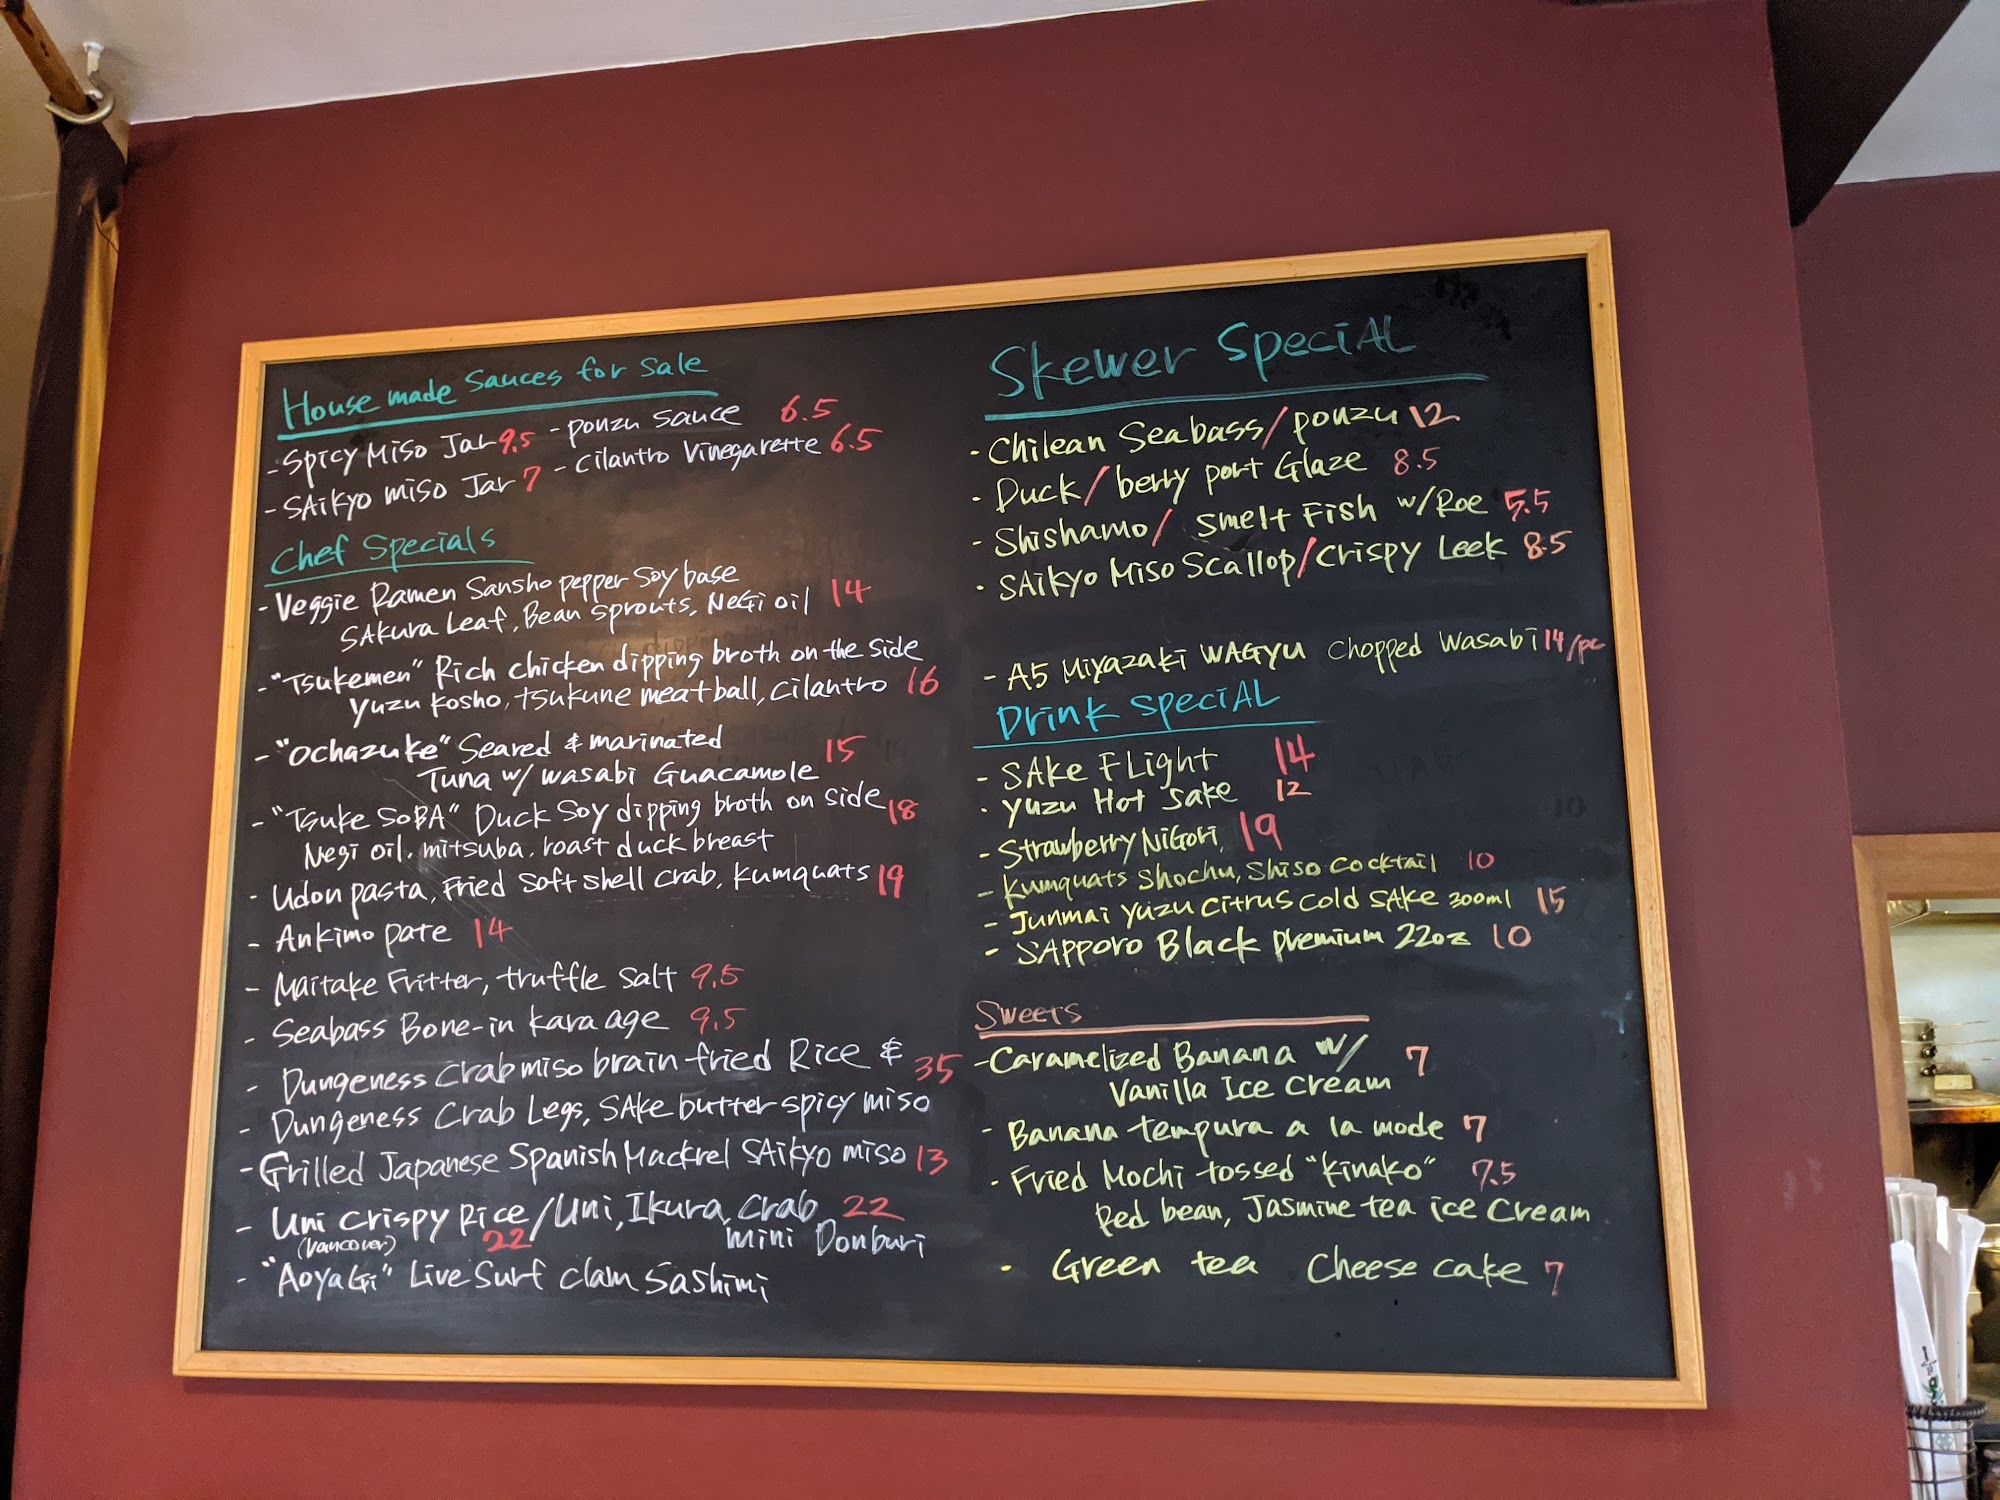 House made Sauces for Sale
- Spicy Miso Jar 9.5 - Ponzu Sauce 6.5
- SAikyo miso Jar 7 - Cilantro Vinegarette 6.5
Chef Specials
- Veggie Ramen Sansho pepper Soy base
SAkura Leaf, Bean Sprouts, NeGi oil 14
- "Tsukemen" Rich chicken dipping broth on the side
Yuzu Kosho, tsukune meatball, Cilantro 16
- "Ochazuke" Seared & marinated 15
Tuna w/ wasabi Guacamole
- "Tsuke SoBA" Duck Soy dipping broth on side 18
Negi oil, mitsuba, roast duck breast
- Udon pasta, Fried Soft shell crab, kumquats 19
- Ankimo pate 14
- Maitake Fritter, truffle Salt 9.5
- Seabass Bone-in kara age 9.5
- Dungeness Crab miso brain fried Rice & 35
- Dungeness Crab Legs, SAke butter spicy miso
- Grilled Japanese Spanish Mackrel SAikyo miso 13
- Uni Crispy Rice / Uni, Ikura, Crab 22
(Vancover) 22 mini Donburi
- "AoyaGi" Live Surf Clam Sashimi
Skewer SpeciAL
- Chilean Seabass / ponzu 12
- Duck / berry port Glaze 8.5
- Shishamo / Smelt Fish w/Roe 5.5
- SAikyo Miso Scallop / Crispy Leek 8.5
- A5 Miyazaki WAGyu Chopped Wasabi 14/pc
Drink SpeciAL
- SAke FLight 14
- Yuzu Hot Sake 12
- Strawberry NiGori, 19
- Kumquats Shochu, Shiso cocktail 10
- Junmai Yuzu Citrus Cold SAke 300ml 15
- SAPPoro Black premium 22oz 10
Sweets
- Caramelized Banana w/ 7
Vanilla Ice Cream
- Banana tempura a la mode 7
- Fried Mochi tossed "Kinako" 7.5
Red bean, Jasmine tea ice Cream
- Green tea Cheese cake 7